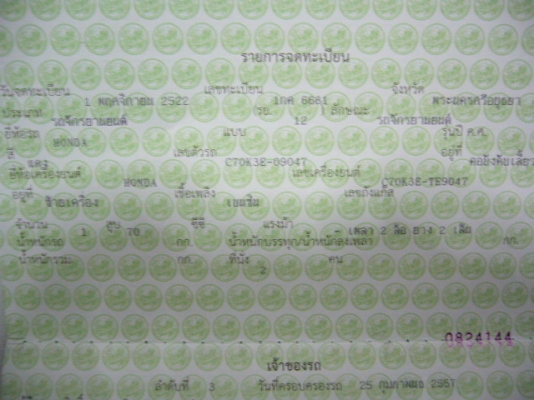 รายการจดทะเบียน
วันจดทะเบียน 1 พฤศจิกายน 2522 เลขทะเบียน 1กค 6681 จังหวัด พระนครศรีอยุธยา
ประเภท รถจักรยานยนต์ (รย. 12 ) ลักษณะ รถจักรยานยนต์
ยี่ห้อรถ HONDA แบบ รุ่นปี ค.ศ.
สี แดง เลขตัวรถ C70K3E-09047 อยู่ที่ คอบังคับเลี้ยว
ยี่ห้อเครื่องยนต์ HONDA เลขเครื่องยนต์ C70K3E-TE9047
อยู่ที่ ซ้ายเครื่อง เชื้อเพลิง เบนซิน เลขถังแก๊ส
จำนวน 1 สูบ 70 ซีซี แรงม้า เพลา 2 ล้อ ยาง 2 เส้น
น้ำหนักรถ กก. น้ำหนักบรรทุก/น้ำหนักลงเพลา กก.
น้ำหนักรวม กก. ที่นั่ง 2 คน
0824144
เจ้าของรถ
ลำดับที่ 3 วันที่ครอบครองรถ 25 กุมภาพันธ์ 2557